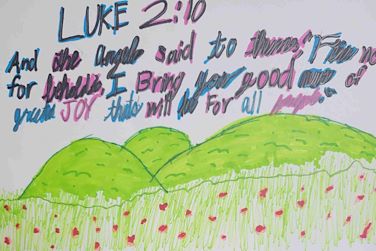 LUKE 2:10
And the Angel said to them, "Fear no
for behold, I Bring you good news of
great JOY that will be For all people."